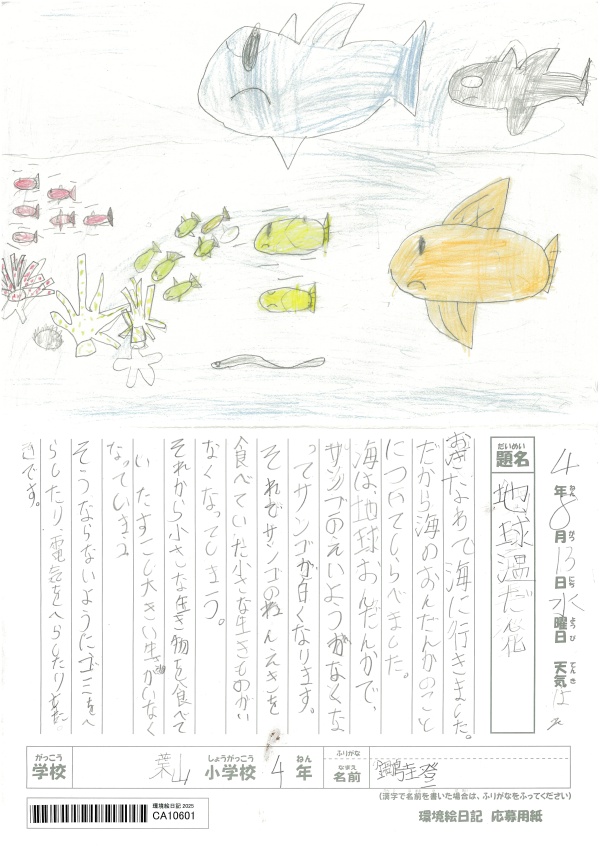 4年8月13日水曜日 天気はれ
ねん がつ にち ようび てんき
だいめい
題名 地球温だん花
おきなわで海に行きました。
だから海のおんだんかのこと
についてしらべました。
海は、地球おんだんかで、
サンゴのえいようがなくな
ってサンゴが白くなります。
それでサンゴのねんえきを
食べていた小さな生きものがい
なくなってしまう。
それから小さな生き物を食べて
いたすこし大きい生きがいなく
なっていきます
そうならないようにゴミをへ
らしたり、電気をへらしたり
きです。
がっこう
学校 葉山
しょうがっこう
小学校 4
ねん
年
ふりがな
なまえ
名前
(漢字で名前を書いた場合は、ふりがなをふってください)
環境絵日記 2025
CA10601
環境絵日記 応募用紙